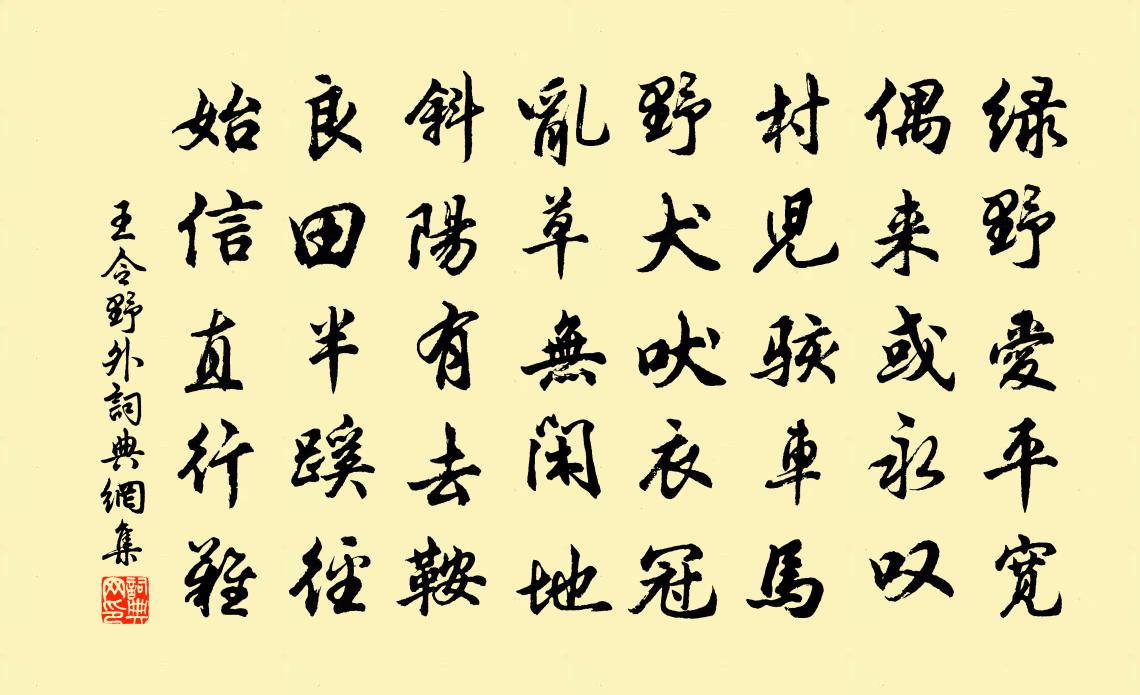 绿野愛平宽
偶来或永叹
村児駭車馬
野犬吠衣冠
亂草無閑地
斜陽有去鞍
良田半蹊徑
始信直行難
王令野外詞典網集
詞典网印